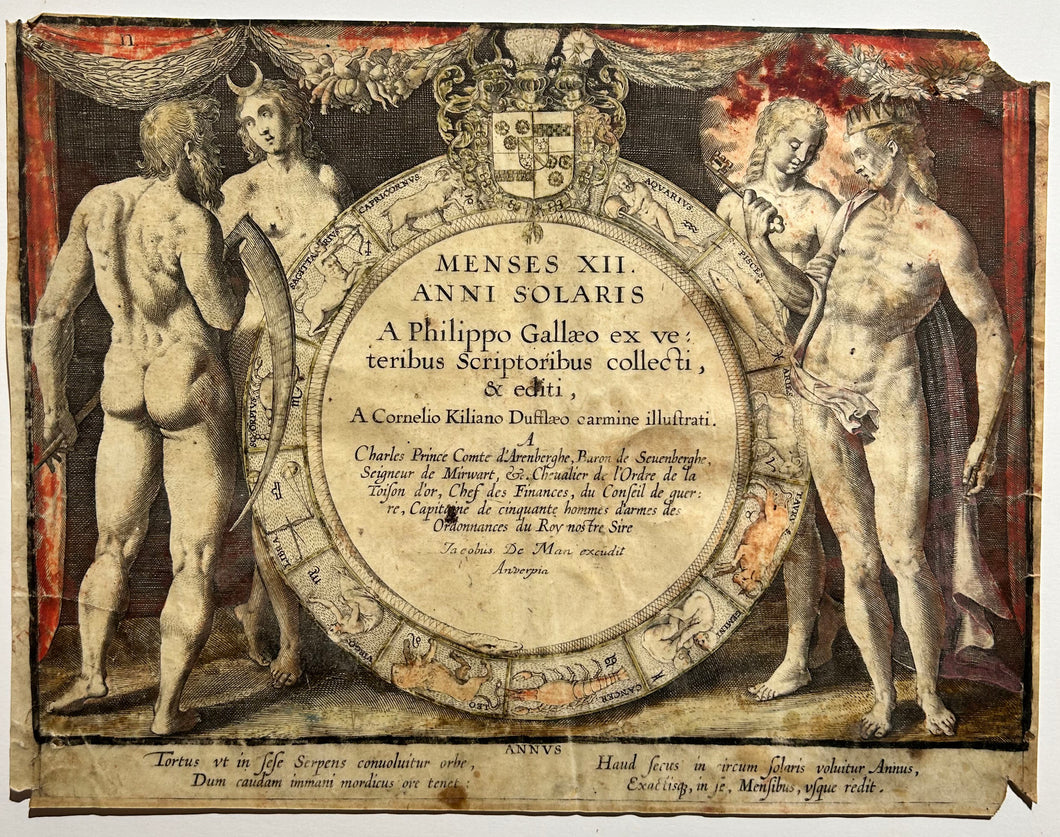 CAPRICORNVS
AQVARIVS
SAGITTARIVS
PISCES
MENSES XII.
ANNI SOLARIS
A Philippo Gallæo ex ve-
teribus Scriptoribus collecti,
& editi,
A Cornelio Kiliano Dufflæo carmine illuſtrati.
A
Charles Prince Comte d'Arenberghe, Baron de Seuenberghe,
Seigneur de Mirwart, &c. Cheualier de l'Ordre de la
Toiſon d'or, Chef des Finances, du Conſeil de guer-
re, Capitaine de cinquante hommes d'armes des
Ordonnances du Roy noſtre Sire
Jacobus De Man excudit
Anverpia
ARIES
SCORPIVS
TAVRVS
LIBRA
GEMINI
VIRGO
LEO
CANCER
ANNVS
Tortus vt in ſeſe Serpens conuoluitur orbe,
Dum caudam immani mordicus ore tenet:
Haud ſecus in circum ſolaris voluitur Annus,
Exactiſq, in ſe, Menſibus, vſque redit.